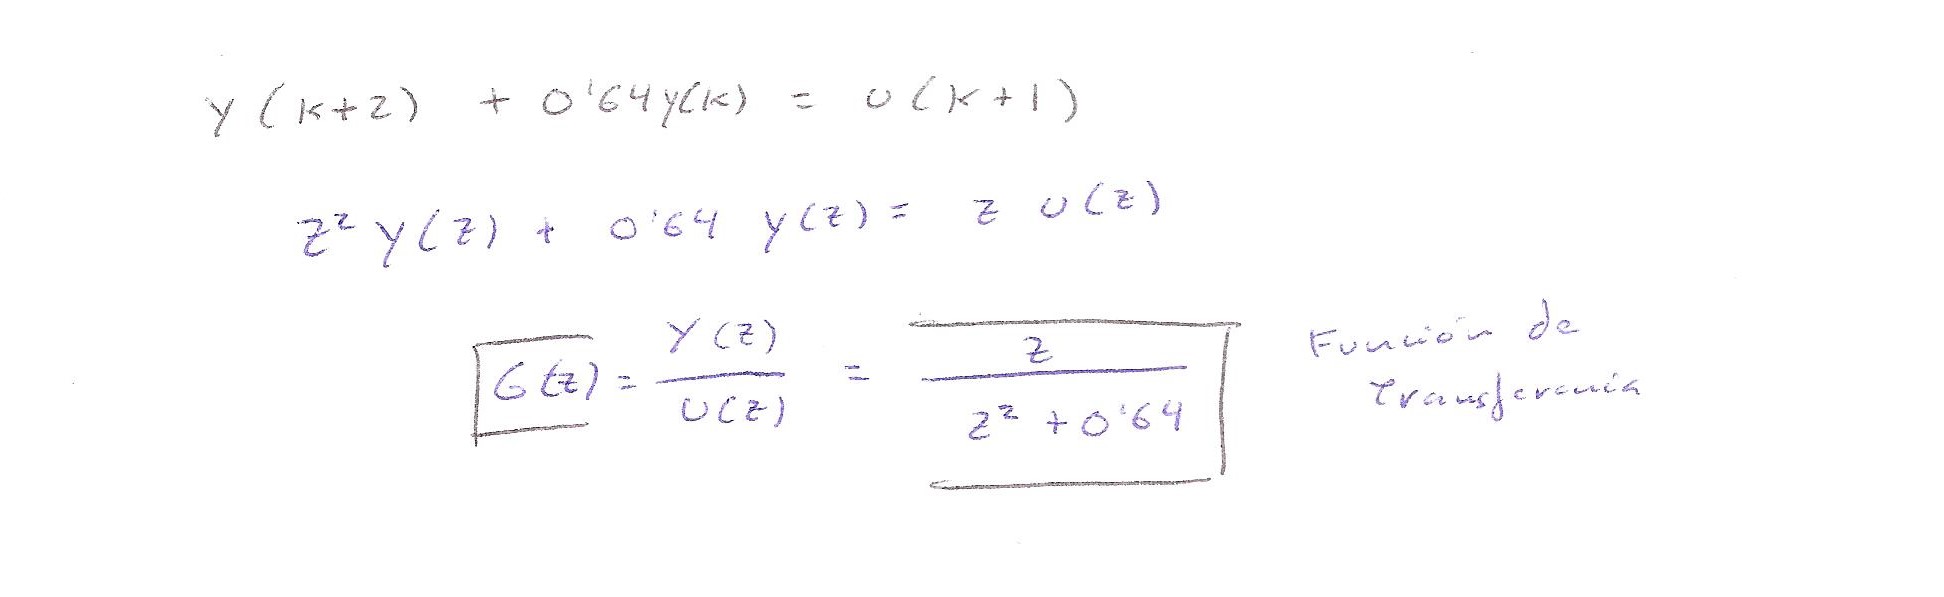 y(k+2) + 0'64y(k) = u(k+1)
z² y(z) + 0'64 y(z) = z u(z)
G(z) = Y(z) / U(z) = z / z² + 0'64
Función de
transferencia